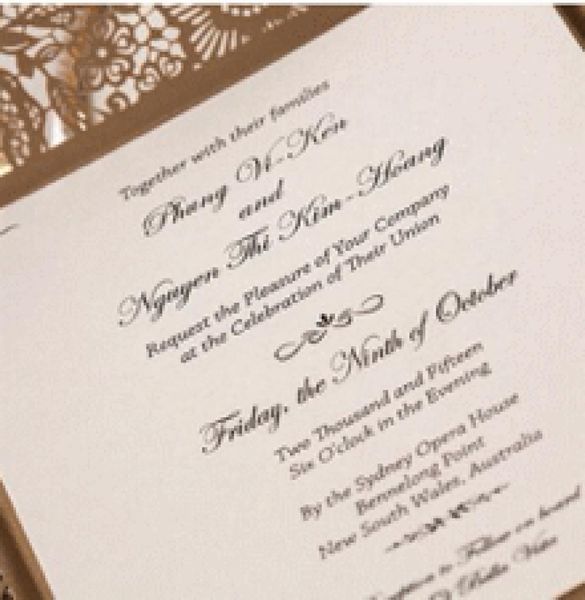 Together with their families
Phang Vi-Ken
and
Nguyen Thi Kim-Hoang
Request the Pleasure of Your Company
at the Celebration of Their Union
Friday, the Ninth of October
Two Thousand and Fifteen
Six O'clock in the Evening
By the Sydney Opera House
Bennelong Point
New South Wales, Australia
to Follow on board
Bella Vista